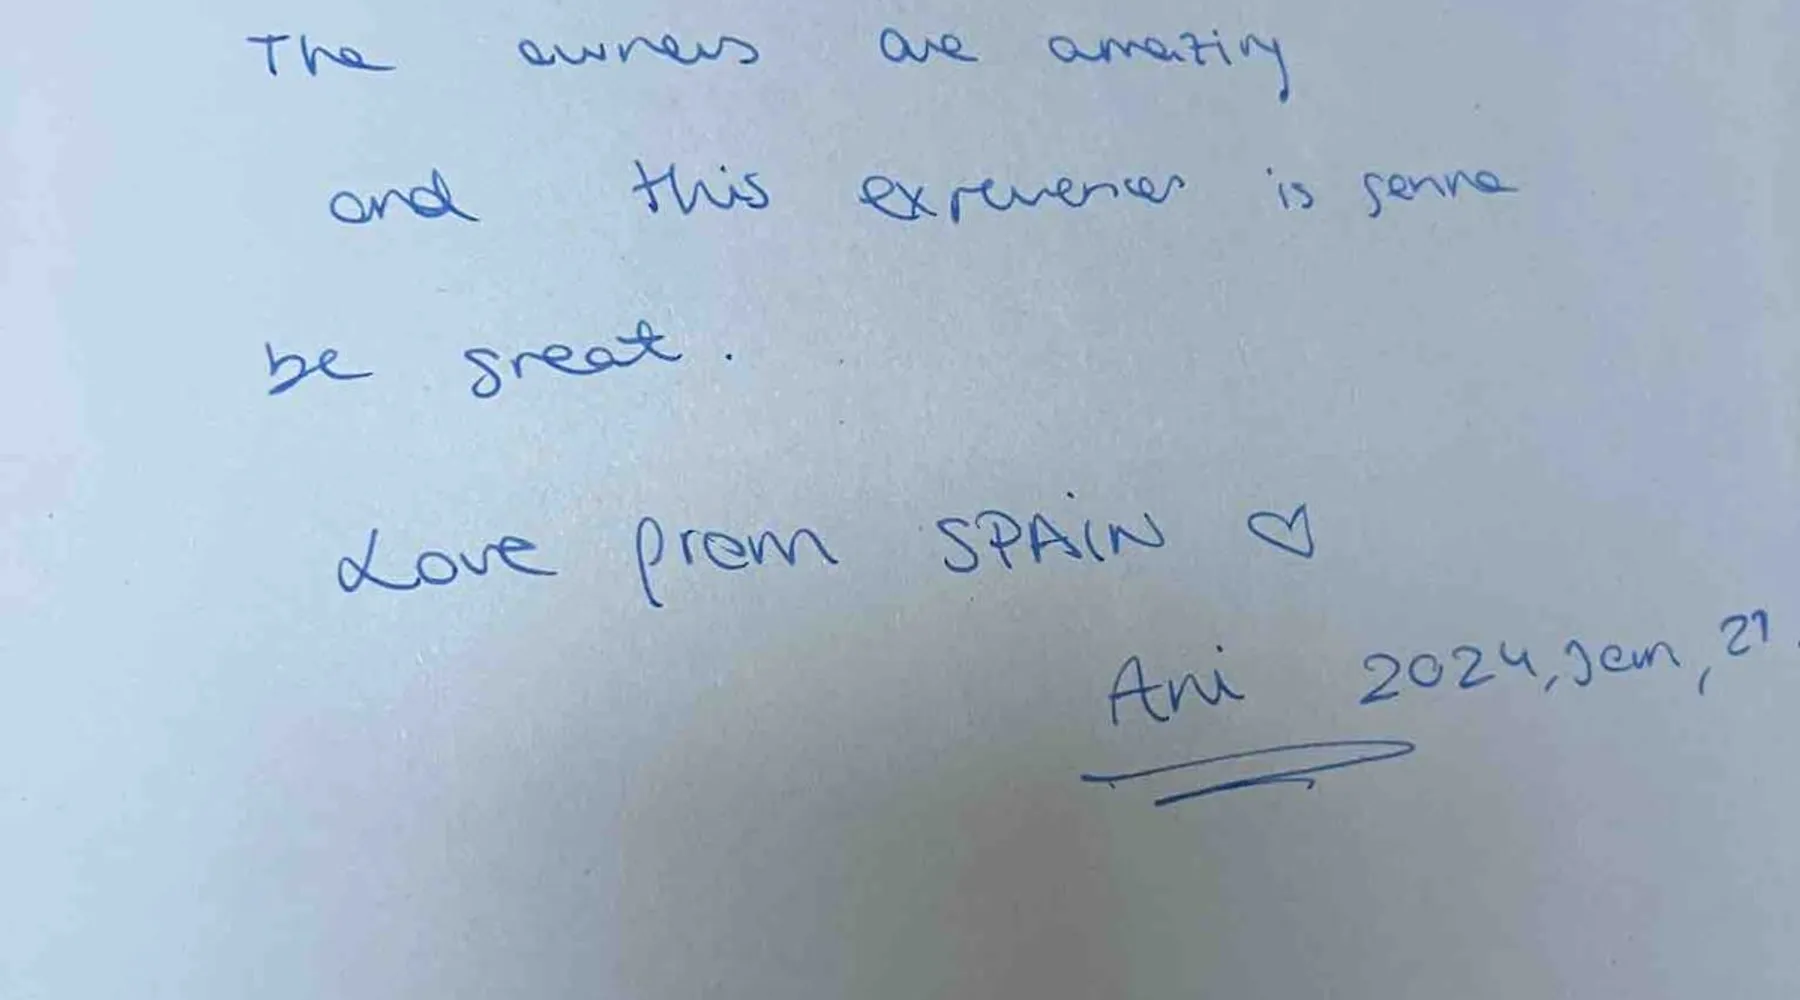 The owners are amazing
and this experiences is gonna
be great.
Love from SPAIN ♡
Ani 2024, Jan, 21.